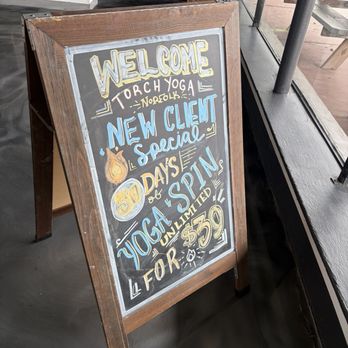 WELCOME
TORCH YOGA
NORFOLK
NEW CLIENT
Special
30 DAYS
of
YOGA SPIN
UNLIMITED
FOR $39